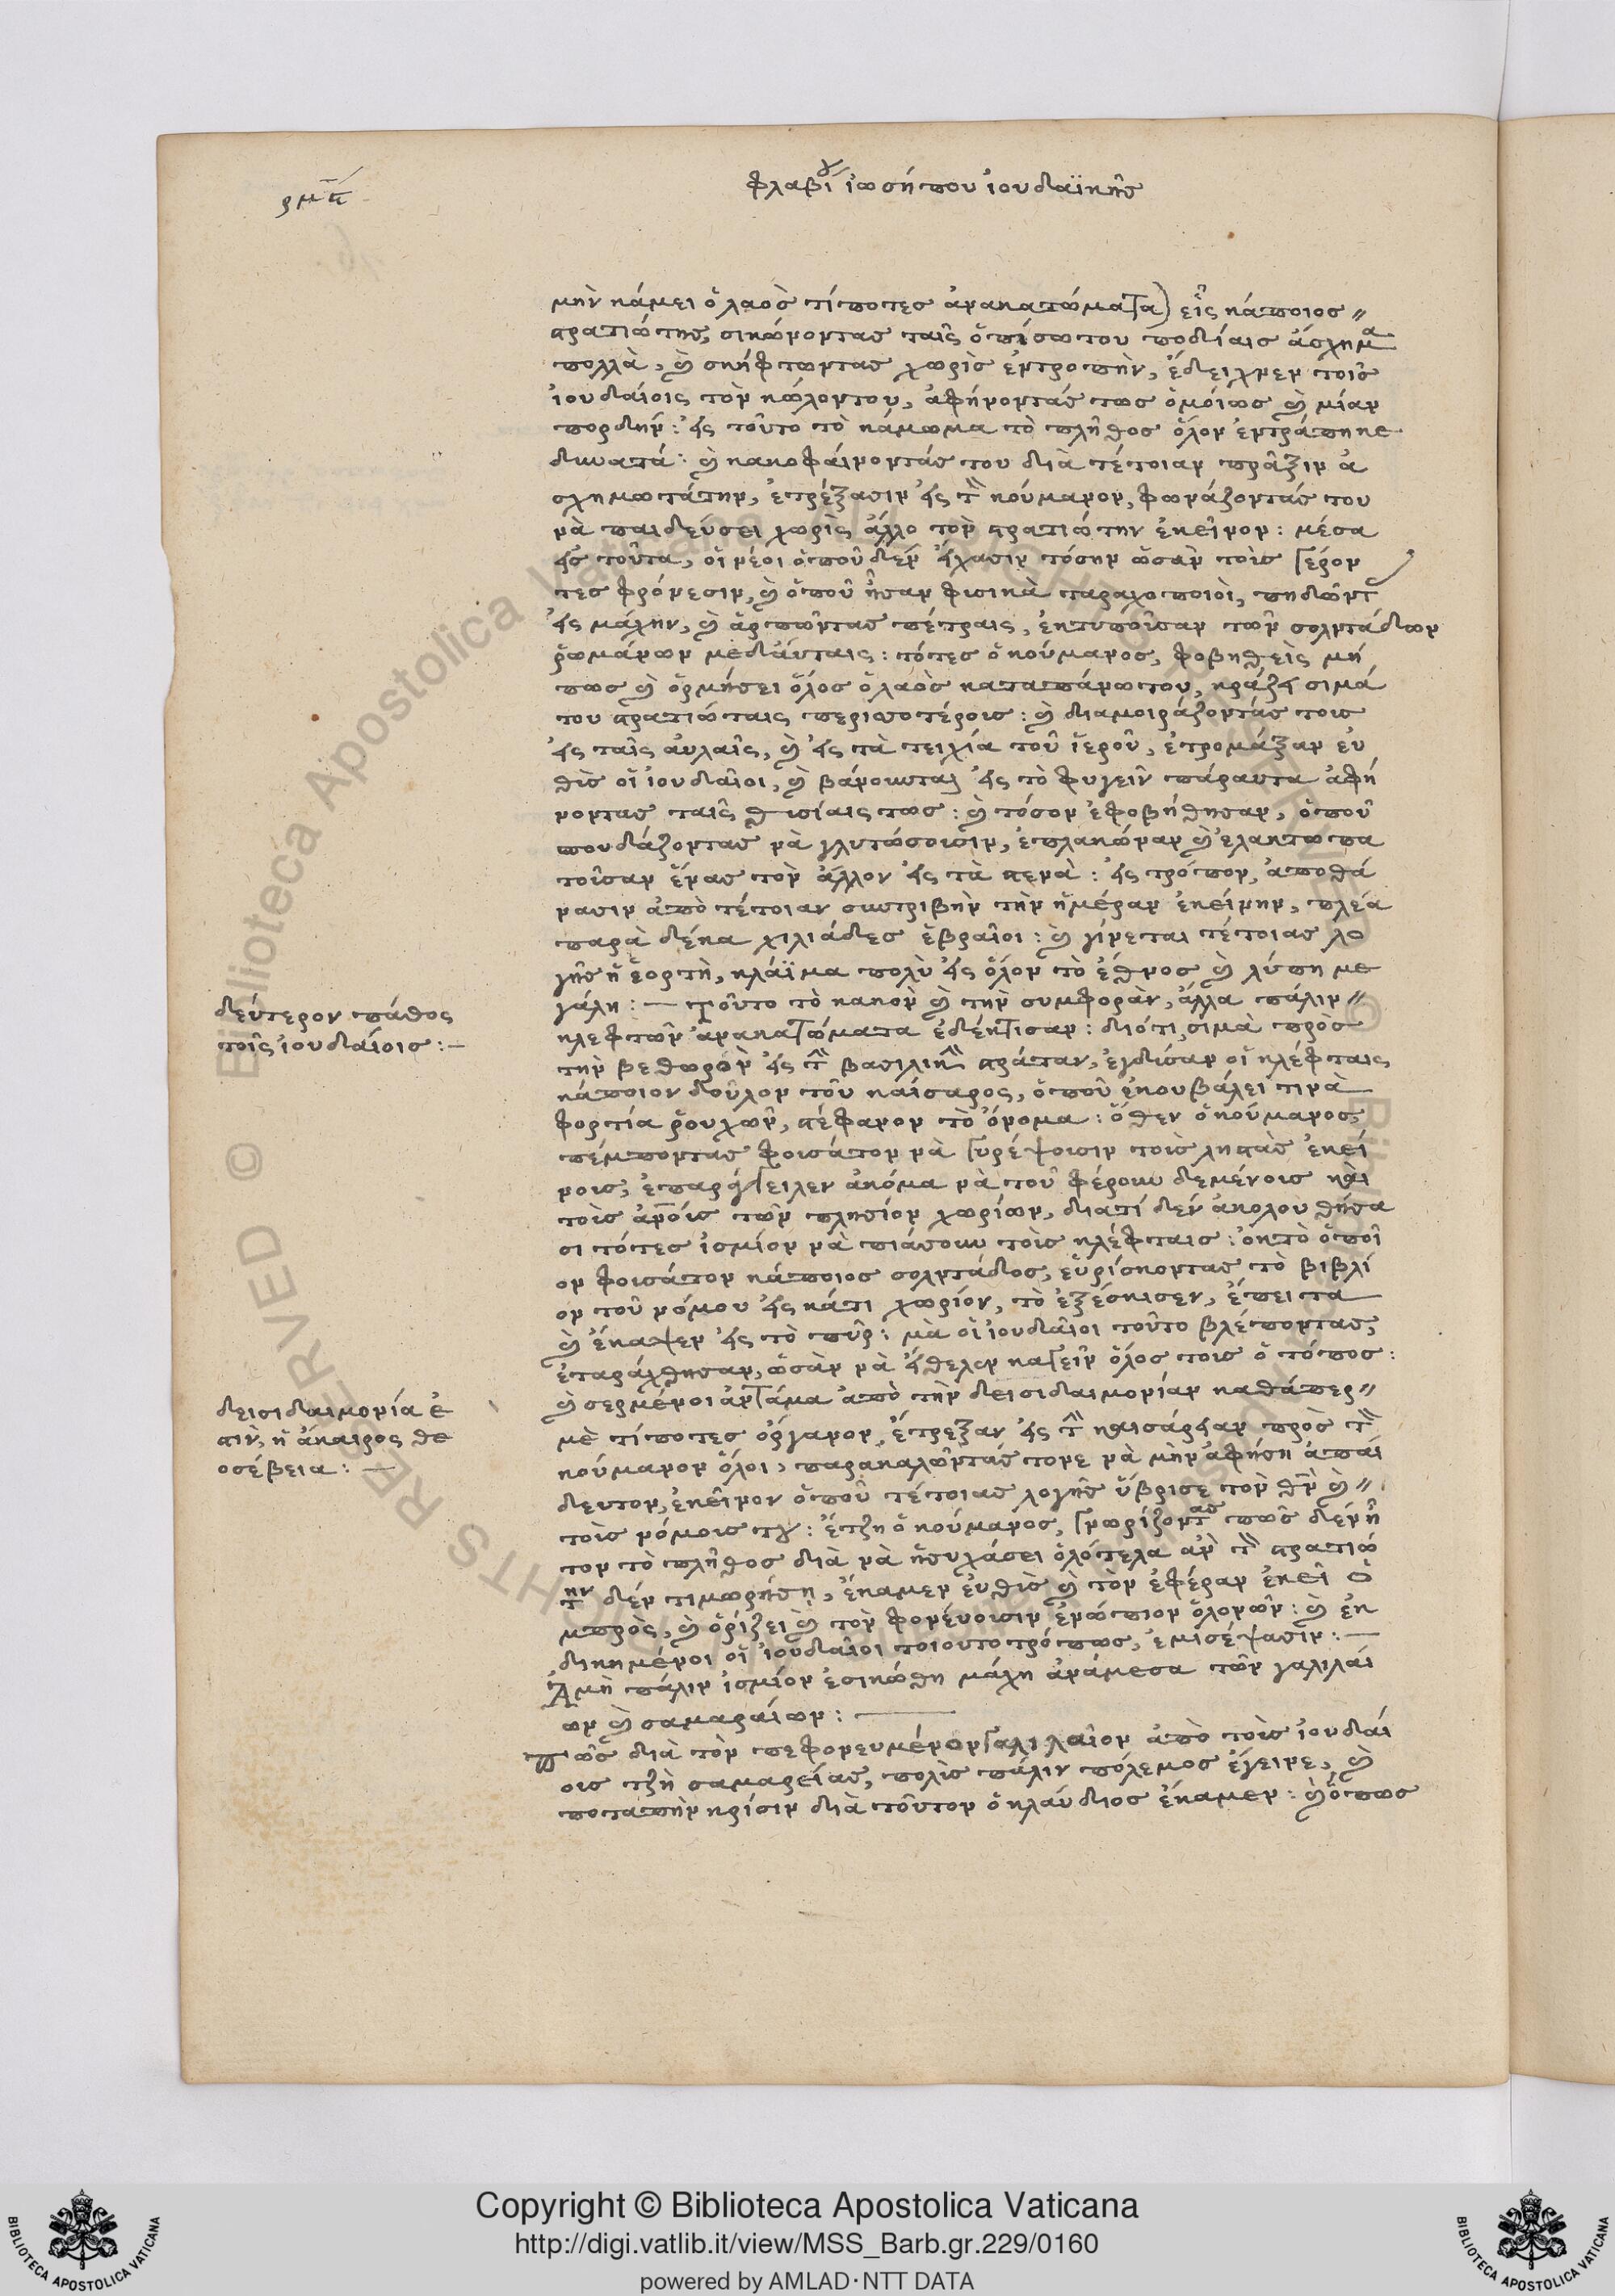 φλαβίου ἰωσήπου ἰουδαϊκῆς
μὴν κάμει ὁ λαὸς τίποτες ἀνακατώματα) εἷς κάποιος
στρατιώτης, σικώνοντας ταῖς ὀπίσω του ποδίαις ἄσχημα
πολλὰ, καὶ σκήφτωντας χωρὶς ἐντροπὴν, ἔδειχνεν τοὶς
ἰουδαίοις τὸν κῶλον του, ἀφήνοντάς τως ὁμοίως καὶ μίαν
πορδήν: εἰς τοῦτο τὸ κάμωμα τὸ πλῆθος ὅλον ἐντράπηκε
δυνατά: καὶ κακοφαίνοντάς του διὰ τέτοιαν πρᾶξιν ἀ
σχημωτάτην, ἐτρέξασιν εἰς τὸν κούμανον, φωνάζοντάς του
νὰ παιδεύσει χωρὶς ἄλλο τὸν στρατιώτην ἐκεῖνον: μέσα
εἰς τοῦτα, οἱ νέοι ὁποῦ δὲν εἴχασιν τόσην ὡσὰν τοὶς γέρον
τες φρόνεσιν, καὶ ὁποῦ ἦσαν φισικὰ ταραχοποιοὶ, πηδῶντας
εἰς μάχην, καὶ ἁρπῶντας πέτραις, ἐκτυποῖσαν τῶν σολντάδων
ῥωμάνων μεδαύταις: τότες ὁ κούμανος, φοβηθεὶς μή
πως καὶ ὁρμήσει ὅλος ὁ λαὸς καταπάνω του, κράζει σιμά
του στρατιώταις περισοτέροις: καὶ διαμοιράζοντάς τοις
εἰς ταῖς αὐλαῖς, καὶ εἰς τὰ τειχία τοῦ ἱεροῦ, ἐτρομάξαν εὐ
θὶς οἱ ἰουδαῖοι, καὶ βάνουνται εἰς τὸ φυγεῖν πάραυτα ἀφή
νοντας ταῖς θισίαις τως: καὶ τόσον ἐφοβήθησαν, ὁποῦ
σπουδάζοντας νὰ γλυτώσοισιν, ἐπλακώναν καὶ ἐλακτωπα
τοῖσαν ἕνας τὸν ἄλλον εἰς τὰ στενὰ: εἰς τρόπον, ἀποθά
νασιν ἀπὸ τέτοιαν συντριβὴν τὴν ἡμέραν ἐκείνην, πλεία
παρὰ δέκα χιλιάδες ἑβραῖοι: καὶ γίνεται τέτοιας λο
γῆς ἡ ἑορτὴ, κλάϊμα πολὺ εἰς ὅλον τὸ ἔθνος καὶ λύπη με
γάλη: — τοῦτο τὸ κακὸν καὶ τὴν συμφορὰν, ἄλλα πάλιν
κλεφτῶν ἀνακατώματα ἐδέχτισαν: διότι, σιμὰ πρὸς
τὴν βεθωρὸν εἰς τὴν βασιλικὴν στράταν, ἐγδίσαν οἱ κλέφταις
κάποιον δοῦλον τοῦ καίσαρος, ὁποῦ ἐκουβάλει τινὰ
φορτία ῥουχῶν, στέφανον τὸ ὄνομα: ὅθεν ὁ κούμανος,
πέμποντας φοισάτον νὰ γυρέψοισιν τοὶς ληστὰς ἐκεί
νοις, ἐπαράγγειλεν ἀκόμα νὰ τοῦ φέρουν δεμένοις καὶ
τοὶς αὐτοὶς τῶν πλησίον χωρίων, διατί δὲν ἀκολουθήσα
σι τότες ἰσμίον νὰ πιάσουν τοὶς κλέφταις: ὀκ τὸ ὁποῖ
ον φοισάτον κάποιος σολντάδος, εὑρίσκοντας τὸ βιβλί
ον τοῦ νόμου εἰς κάτι χωρίον, τὸ ἐξέσκισεν, ἔπειτα
καὶ ἔκαψεν εἰς τὸ πῦρ: μὰ οἱ ἰουδαῖοι τοῦτο βλέποντας,
ἐταράχθησαν, ὡσὰν νὰ εἴθελεν καγεῖν ὅλος τοις ὁ τόπος:
καὶ σερμένοι ἀντάμα ἀπὸ τὴν δεισιδαιμονίαν καθάπερ
μὲ τίποτες ὄργανον, ἔτρεξαν εἰς τὴν καισάρειαν πρὸς τὸν
κούμανον ὅλοι, παρακαλῶντάς τονε νὰ μὴν ἀφήση ἀπαί
δευτον, ἐκεῖνον ὁποῦ τέτοιας λογῆς ὕβρισε τὸν θν καὶ
τοὶς νόμοις του: ἔτζη ὁ κούμανος, γνωρίζοντας πῶς δὲν ἦ
τον τὸ πλῆθος διὰ νὰ ἡσυχάσει ὁλότελα ἂν τὸν στρατιώ
την δὲν τιμωρήση, ἔκαμεν εὐθὶς καὶ τὸν ἐφέραν ἐκεῖ ὀ
μπρὸς, καὶ ὁρίζει καὶ τὸν φονεύοισιν ἐνώπιον ὁλονῶν: καὶ ἐκ
δικημένοι οἱ ἰουδαῖοι τοιουτοτρόπως, ἐμισέψασιν: —
Ἀμὴ πάλιν ἰσμίον ἐσικώθη μάχη ἀνάμεσα τῶν γαλιλαί
ων καὶ σαμαραίων: —
πῶς διὰ τὸν πεφονευμένον γαλιλαῖον ἀπὸ τοὶς ἰουδαί
οις τζὴ σαμαρείας, πολὶς πάλιν πόλεμος ἔγειρε, καὶ
ποταπὴν κρίσιν διὰ τοῦτον ὁ κλαύδιος ἔκαμεν: καὶ ὅπως
δεύτερον πάθος
τοῖς ἰουδαίοις: —
δεισιδαιμονία ἐ
στὶν, ἡ ἄκαιρος θε
οσέβεια: —
Copyright © Biblioteca Apostolica Vaticana
http://digi.vatlib.it/view/MSS_Barb.gr.229/0160
powered by AMLAD·NTT DATA
BIBLIOTECA APOSTOLICA VATICANA
BIBLIOTECA APOSTOLICA VATICANA